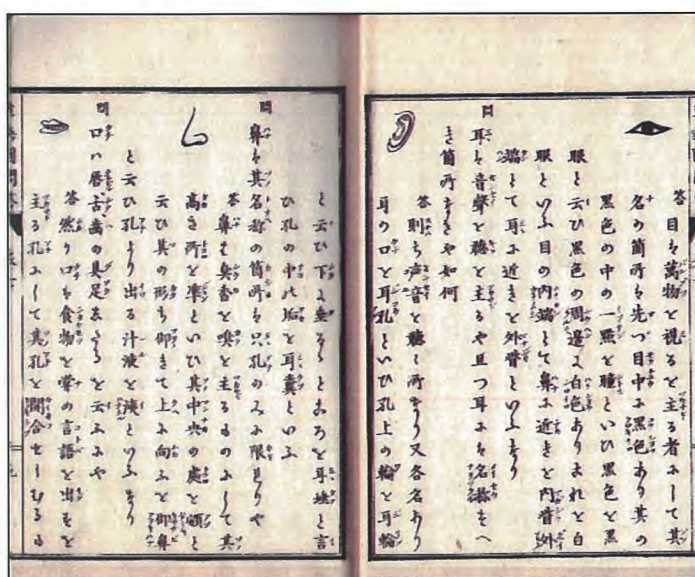 答 目は萬物を視るを主る者にして其
名の箇所も先づ目中に黒色あり其の
黒色の中の一點を瞳といひ黒色を黒
眼と云ひ黒色の周邊に白色ありこれを白
眼といふ目の内端にて鼻に近きを内眥外
端にて耳に近きを外眥といふなり
問 耳は音聲を聴を主るや且つ耳にも名称をへ
き箇所ありや如何
答 則ち声音を聴く所なり又各名あり
耳の口を耳孔といひ孔上の輪を耳輪
と云ひ下に垂るゝところを耳埵と言
ひ孔の中の垢を耳糞といふ
問 鼻は其名称の箇所も只孔のみに限るや
答 鼻は臭香を嗅を主るものにして其
高き所を準といひ其中央の處を頞と
云ひ其の形ち仰きて上に向ふを仰鼻
と云ひ孔より出る汁液を洟といふなり
問 口ハ唇舌歯の具足したるを云ふにや
答 然り口は食物を嘗め言語を出すを
主る孔にして其孔を開合せしむるは